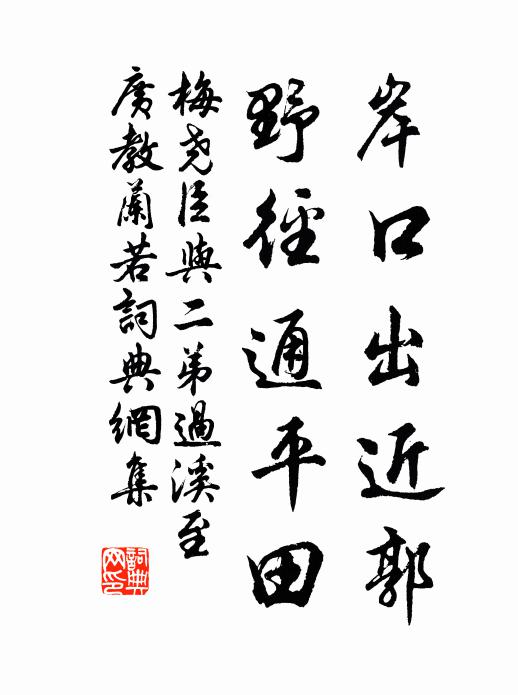 岸口出近郭
野徑通平田
梅堯臣與二弟過溪至
廣教蘭若詞典網集
詞典網印